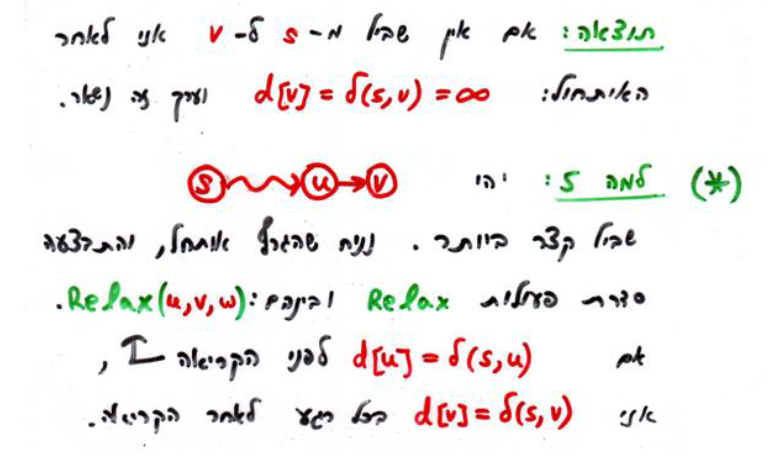 תוצאה: אם אין שביל מ-s ל-v אזי לאחר
האיתחול: d[v] = δ(s,v) = ∞ וערך זה נשאר.
(*) למה 5: יהי s u v
שביל קצר ביותר. נניח שהגרף אותחל, והתבצעה
סדרת פעולות Relax וביניהם: Relax(u,v,w).
אם d[u] = δ(s,u) לפני הקריאה,
אזי d[v] = δ(s,v) בכל רגע לאחר הקריאה.